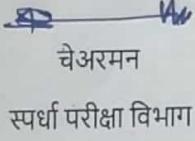 चेअरमन
स्पर्धा परीक्षा विभाग